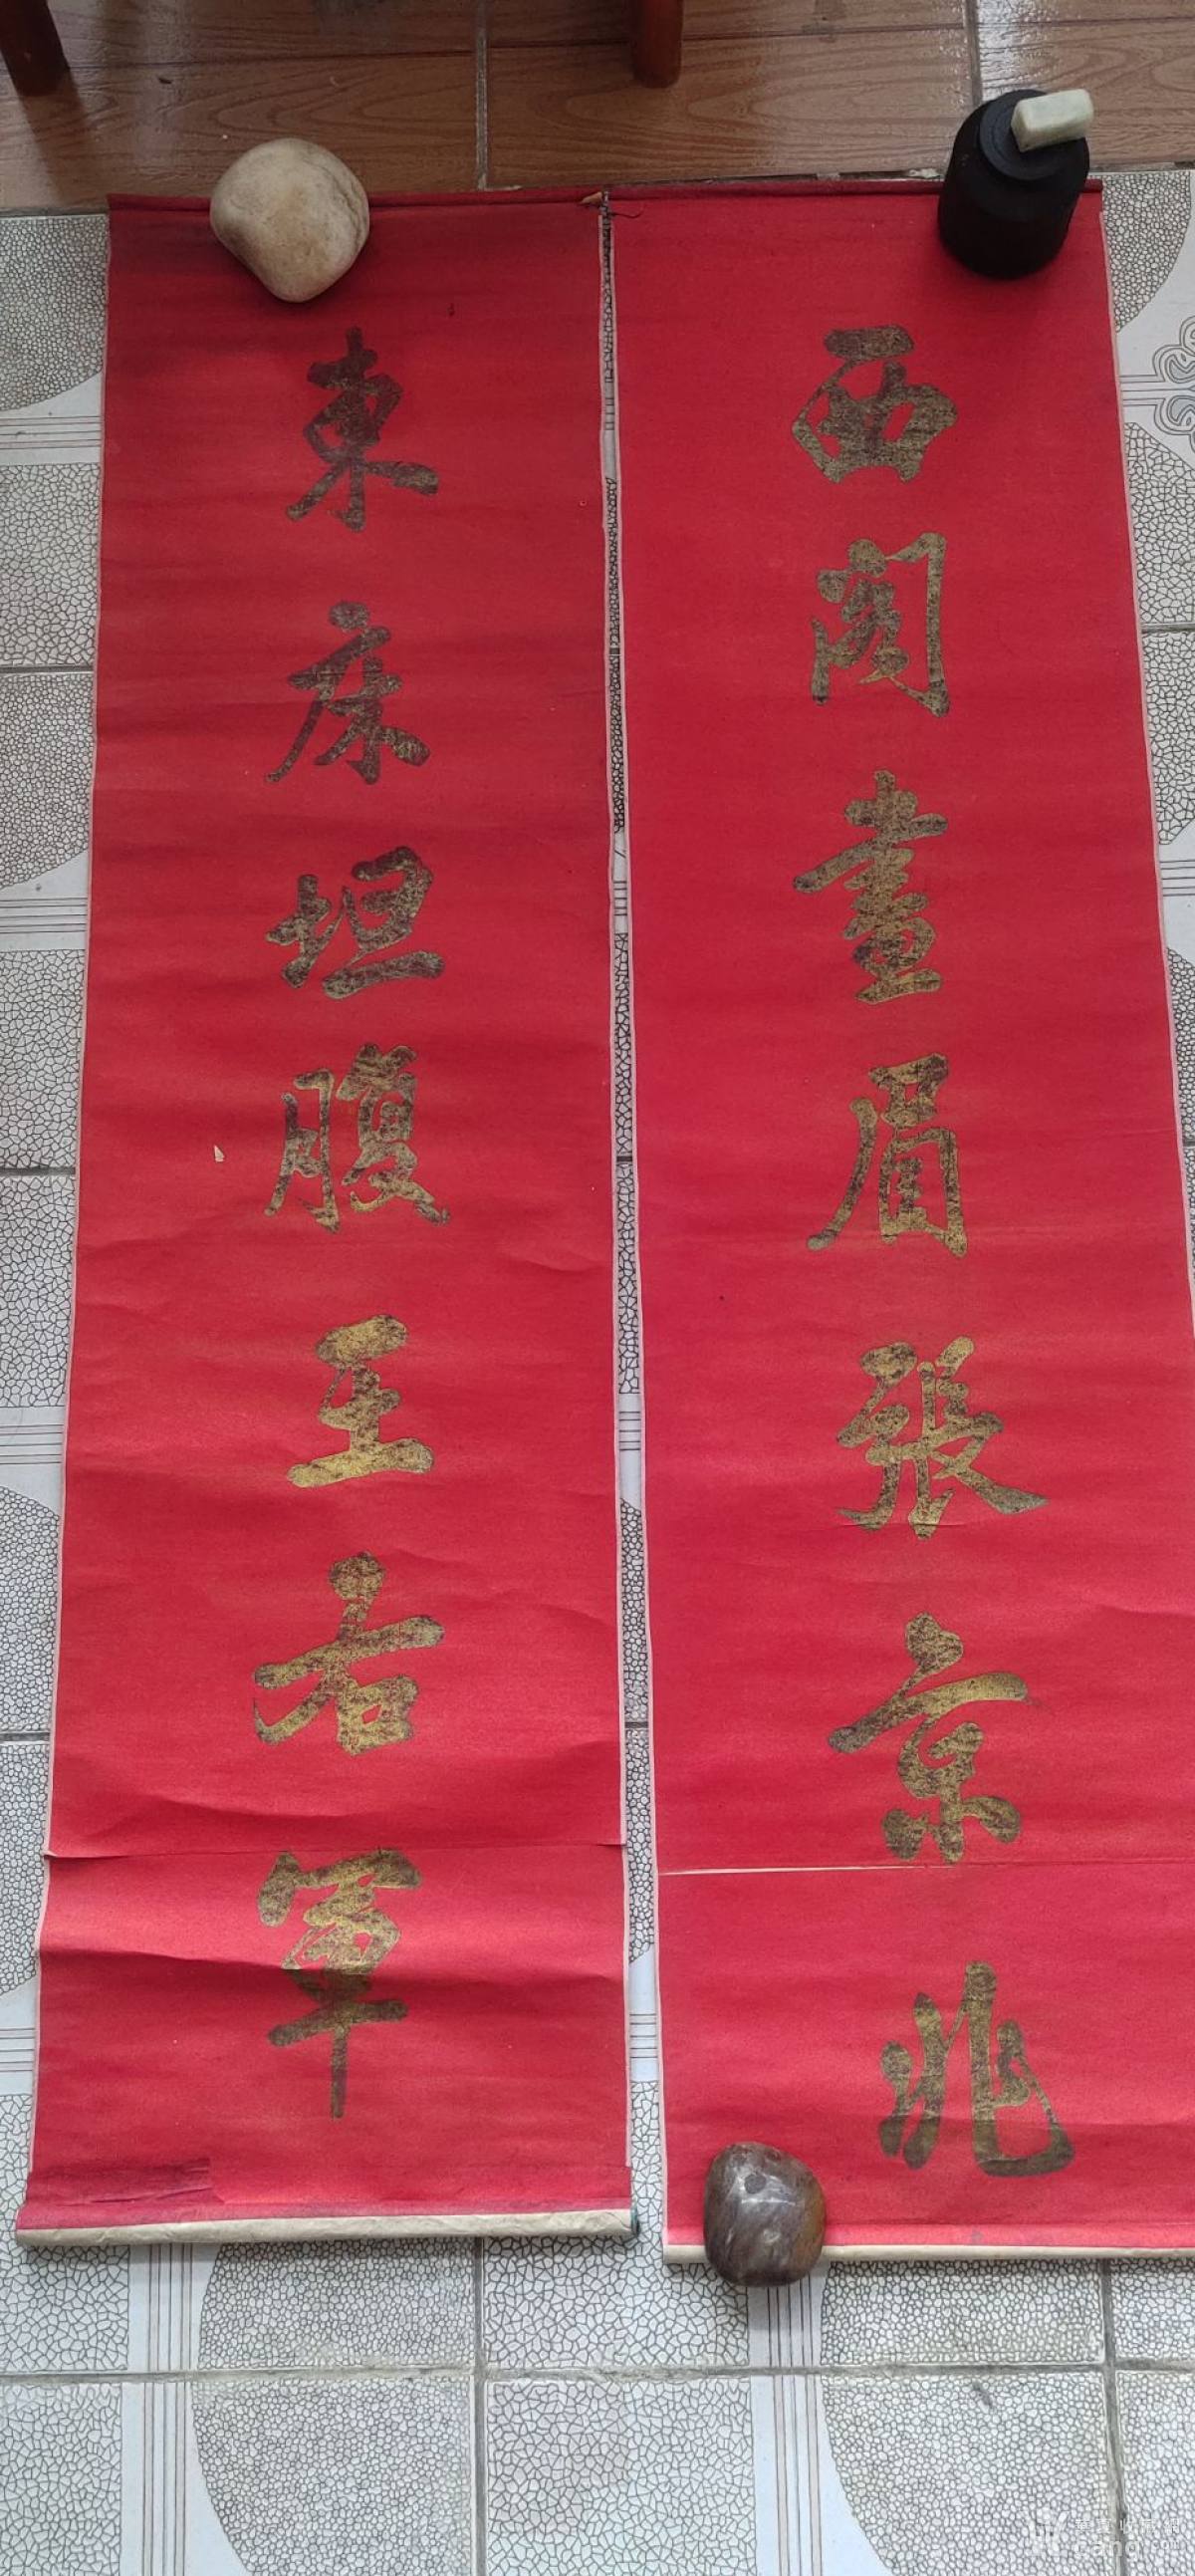 西閣畫眉張京兆
東床坦腹王右軍